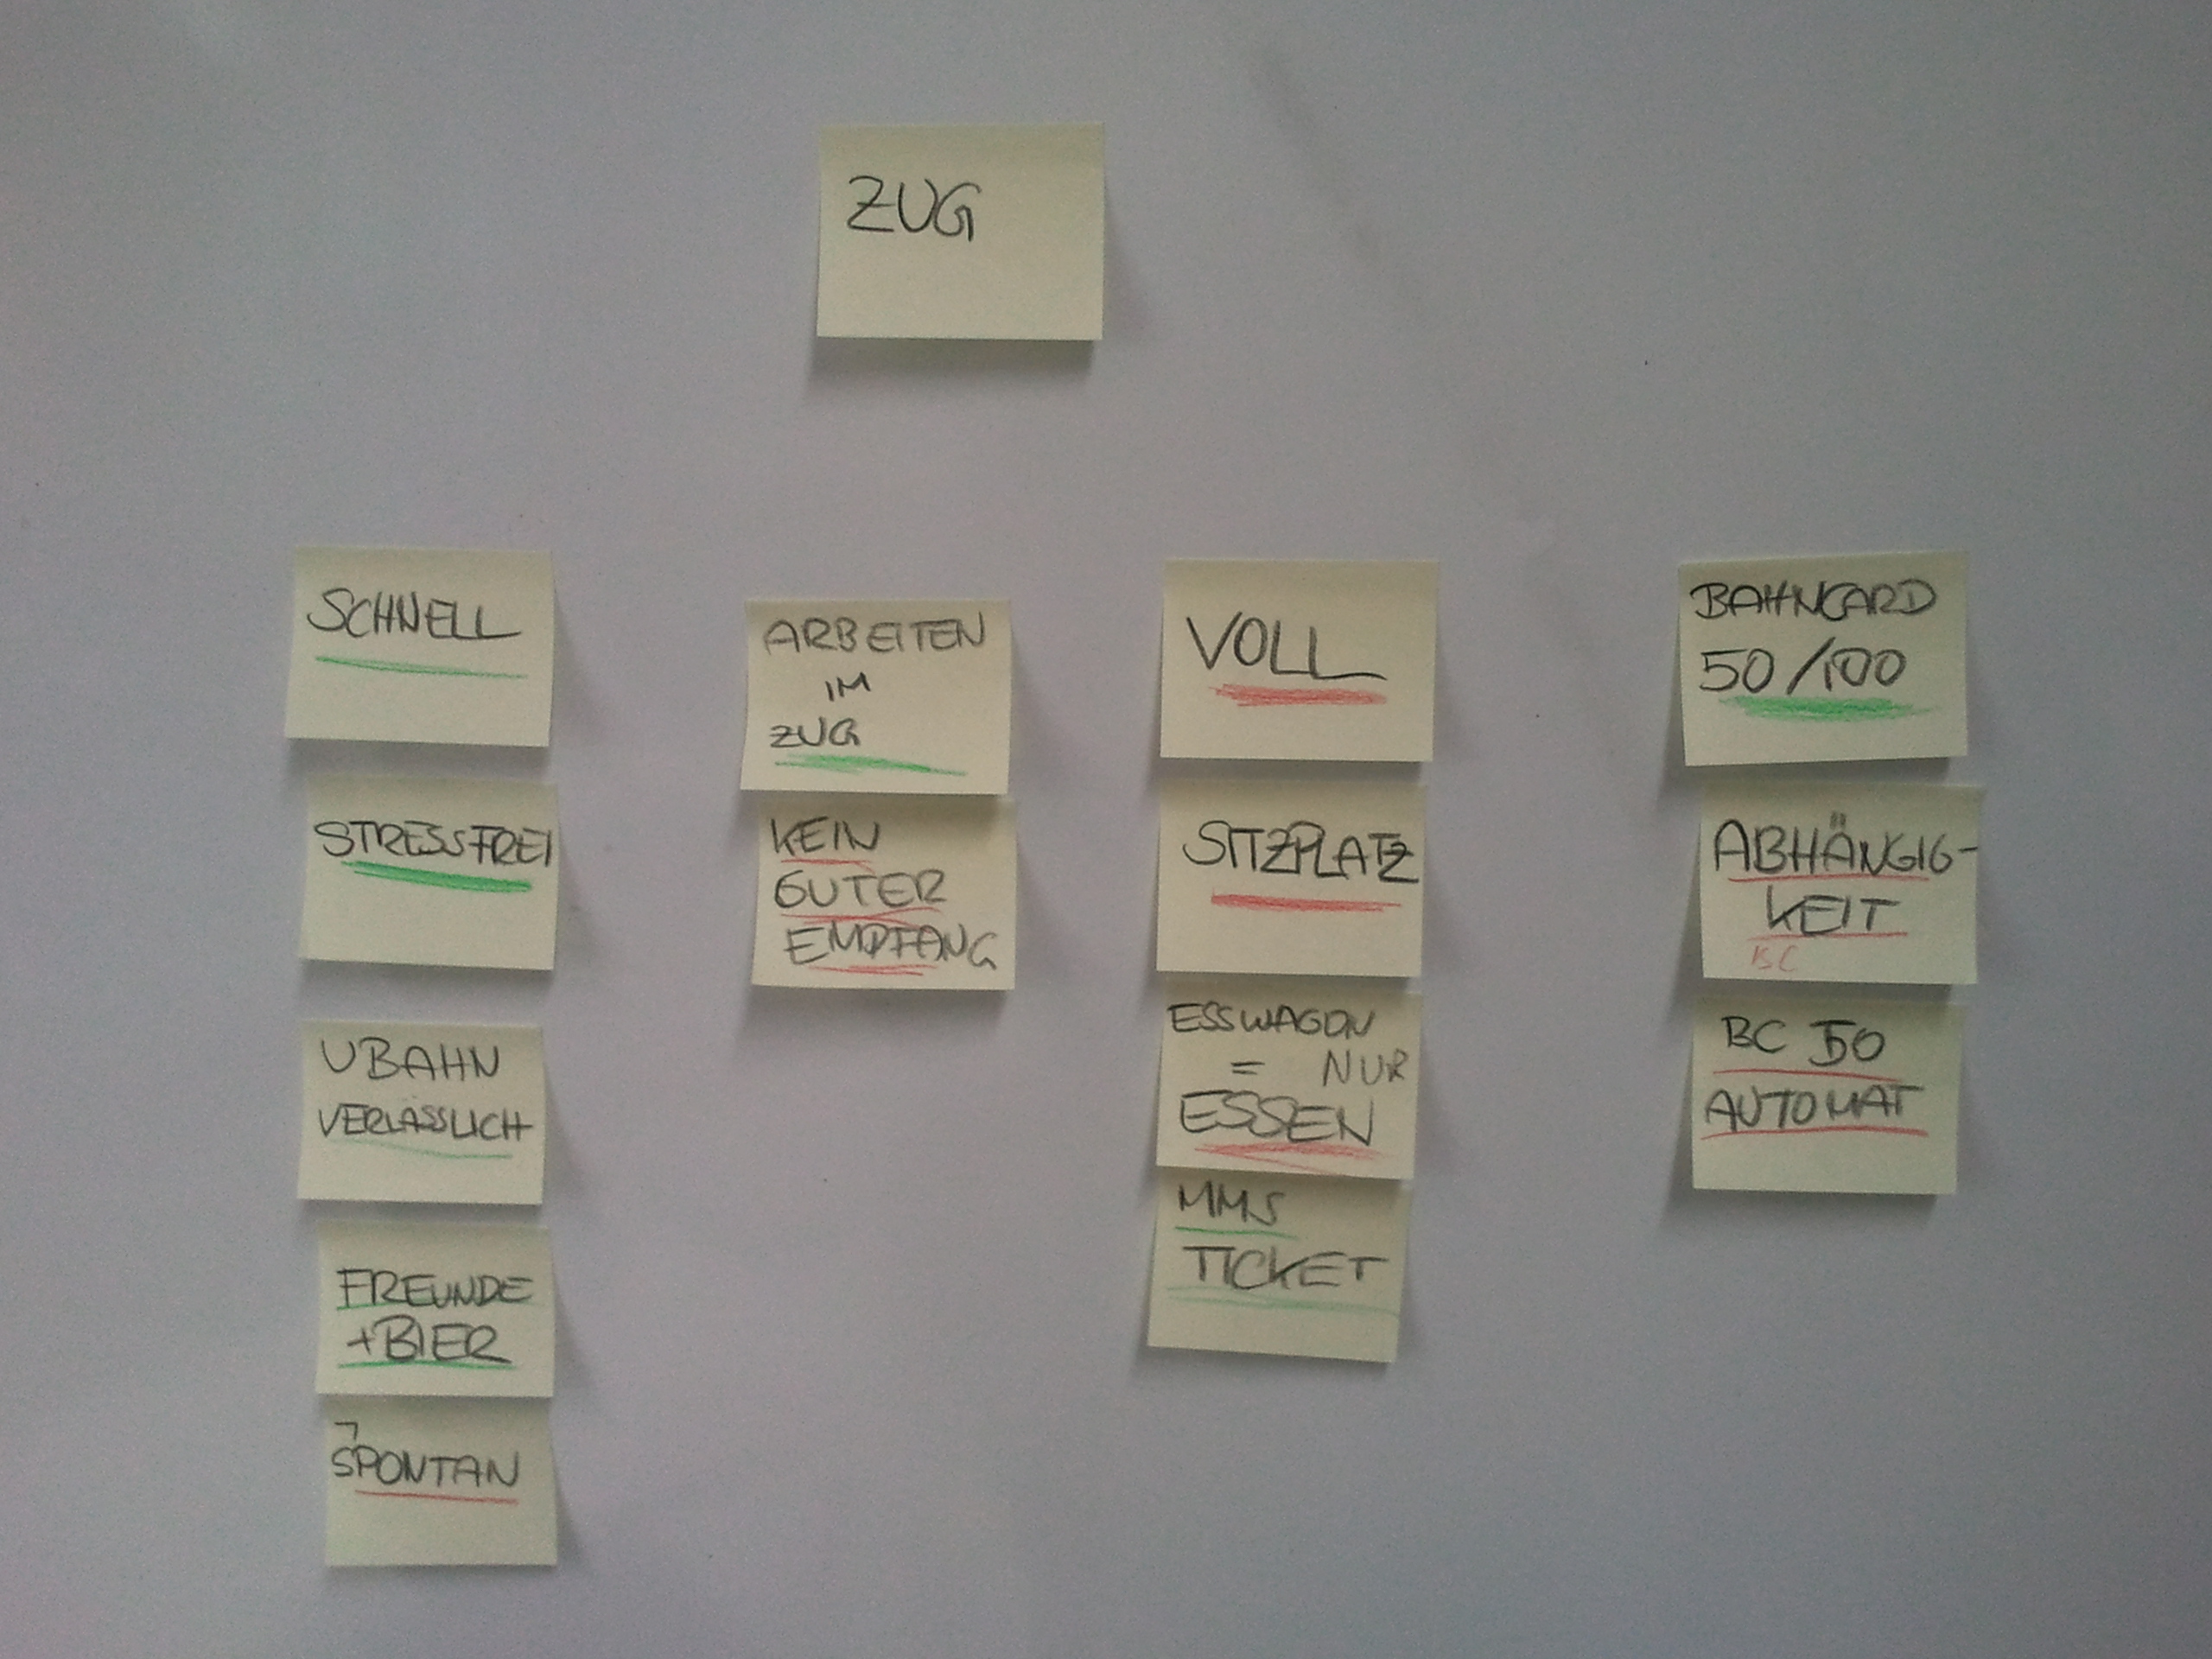 ZUG
SCHNELL
STRESSFREI
UBAHN
VERLÄSSLICH
FREUNDE
+BIER
¬
SPONTAN
ARBEITEN
IM
ZUG
KEIN
GUTER
EMPFANG
VOLL
SITZPLATZ
ESSWAGON
= NUR
ESSEN
MMS
TICKET
BAHNCARD
50/100
ABHÄNGIG-
KEIT
BC
BC 50
AUTOMAT